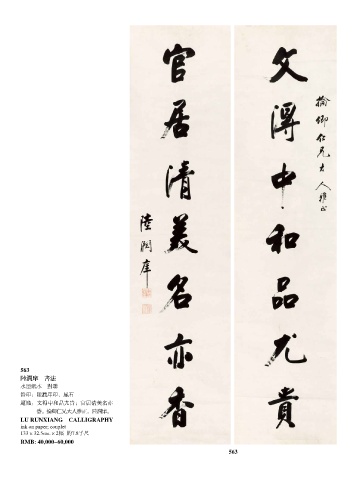 文得中和品尤貴
揄卿仁兄大人雅正
官居清美名亦香
陸潤庠
563
陸潤庠 書法
水墨紙本 對聯
LU RUNXIANG CALLIGRAPHY
ink on paper, couplet
RMB: 40,000~60,000
563